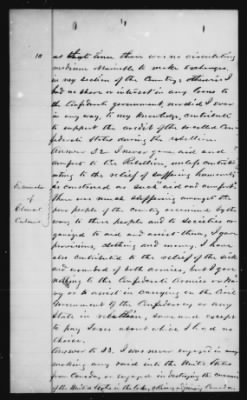 10
at that time there was no circulating
medium to make exchanges,
in my section of the Country; otherwise I
had no share or interest in any loans to
the Confederate government, nor did I ever
in any way, to my knowledge, contribute
to support the credit of the so-called Con-
federate States during the rebellion.
Answer 32. I never gave aid and
comfort to the Rebellion, unless contrib-
uting to the relief of suffering humanity
is construed as such aid and comfort.
There was much suffering amongst the
poor people of the county occasioned by the
war; to these people and to societies or-
ganized to aid and assist them, I gave
provisions, clothing and money. I have
also contributed to the relief of the sick
and wounded of both armies, but I gave
nothing to the Confederate Armies or Na-
vy or to assist in carrying on the Civil
Government of the Confederacy or any
State in rebellion, save and except
to pay Taxes about which I had no
choice.
Answer to 33. I was never engaged in any
making any raid into the United States
from Canada, or engaged in destroying the commerce
of the United States on the lakes, &
of